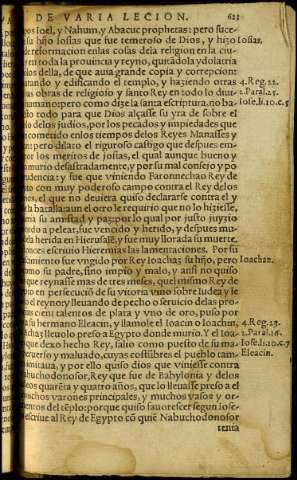 DE VARIA LECION. 623
pos Ioel, y Nahum, y Abacuc prophetas: pero suce-
su hijo Iosias que fue temeroso de Dios, y hizo Iosias.
reformacion enlas cosas dela religion en la ciu-
en toda la prouincia y reyno, quitãdola ydolatria
los della, de que auia grande copia y corrupcion:
rando y edificando el templo, y haziendo otras 4.Reg.22.
as obras de religioso y santo Rey en todo lo diui- 2.Paral.25.
umano: pero como dize la santa escriptura, no ba- Iose.li.10.c.5
to todo para que Dios alçasse su yra de sobre el
lo delos judios, por los pecados y impiedades que
cometido enlos tiempos delos Reyes Manasses y
n: pero dilato el riguroso castigo que despues em-
or los meritos de josias, el qual aunque bueno y
murio desastradamente, y por su mal consejo y po
udencia: y fue que viniendo Faronnechao Rey de
to con muy poderoso campo contra el Rey delos
os, el que no deuiera quiso declararse contra el y
la batalla: aun el otro le requirio que no lo hiziesse,
ua su amistad y paz: por lo qual por justo juyzio
endo a pelear, fue vencido y herido, y despues mu-
la herida en Hierusalẽ, y fue muy llorada su muerte,
nces escriuio Hieremias las lamentaciones. Por su
cimiento fue vngido por Rey Ioachaz su hijo, pero Ioachaz.
omo su padre, sino impio y malo, y ansi no quiso
que reynasse mas de tres meses, que el mismo Rey de
to en persecuciõ de su vitoria vino sobre Iudea y le
o el reyno y lleuando de pecho o seruicio delas pro
cien talentos de plata y vno de oro, puso por
a su hermano Eleacin, y llamole el Ioacin o Ioachim,
chaz lleuolo preso a Egipto donde murio. Y el Ioa- 4.Reg.23.
que dexo hecho Rey, salio como puesto de su ma- 2.Paral.36.
cuerso y maluado, cuyas costũbres el pueblo tam- Iose.li.10.c.7
imitaua, y por ello quiso dios que viniesse contra Eleacin.
abuchodonosor, Rey que fue de Babylonia y delos
eos quarẽta y quatro años, que lo lleuasse preso a el
uchos varones principales, y muchos vasos y or-
mentos del tẽplo: porque quiso fauorescer segun Iose-
escriue al Rey de Egypto cõ quiẽ Nabuchodonosor
tenia